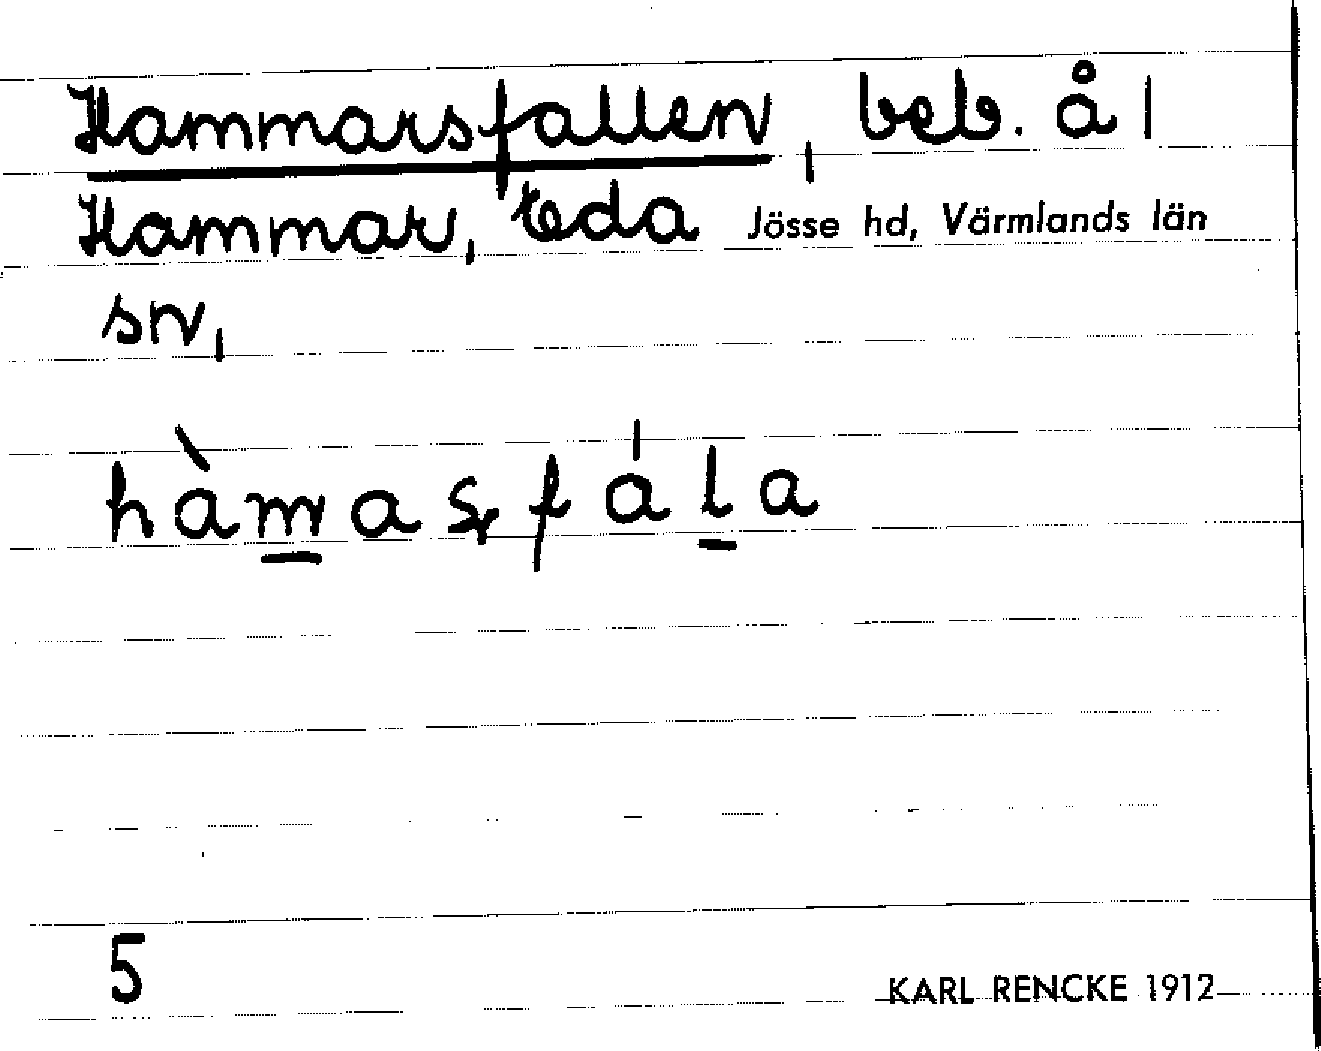 Hammarsfallen, beb. å 1
Hammar, Eda Jösse hd, Värmlands län
sn,
hàmasfála
5
KARL RENCKE 1912